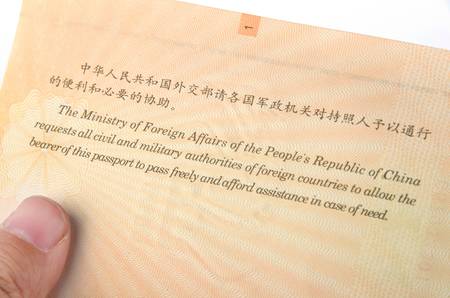 1
中华人民共和国外交部请各国军政机关对持照人予以通行
的便利和必要的协助。
The Ministry of Foreign Affairs of the People's Republic of China
requests all civil and military authorities of foreign countries to allow the
bearer of this passport to pass freely and afford assistance in case of need.